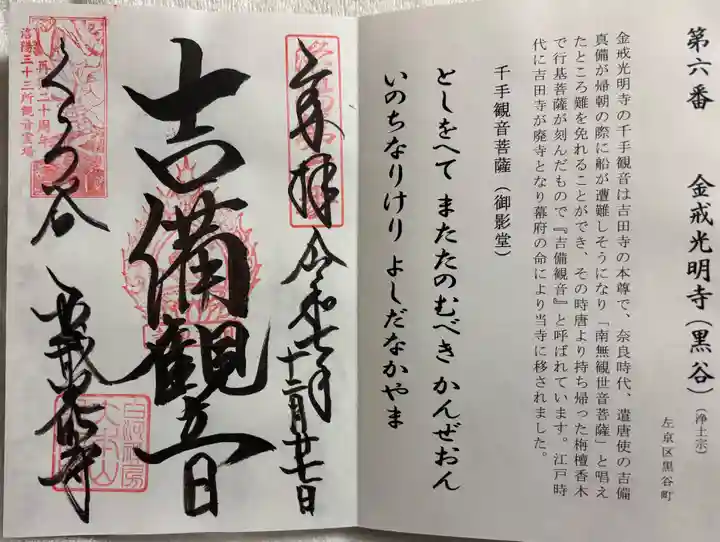 第六番 金戒光明寺(黒谷)(浄土宗)
左京区黒谷町
金戒光明寺の千手観音は吉田寺の本尊で、奈良時代、遣唐使の吉備
真備が帰朝の際に船が遭難しそうになり「南無観世音菩薩」と唱え
たところ難を免れることができ、その時唐より持ち帰った栴檀香木
で行基菩薩が刻んだもので『吉備観音』と呼ばれています。江戸時
代に吉田寺が廃寺となり幕府の命により当寺に移されました。
千手観音菩薩(御影堂)
としをへて またたのむべき かんぜおん
いのちなりけり よしだなかやま
奉拝 令和七年
十二月廿七日
吉備観音
くろ谷 金戒光明寺
再興二十周年
洛陽三十三所観音霊場
大本山